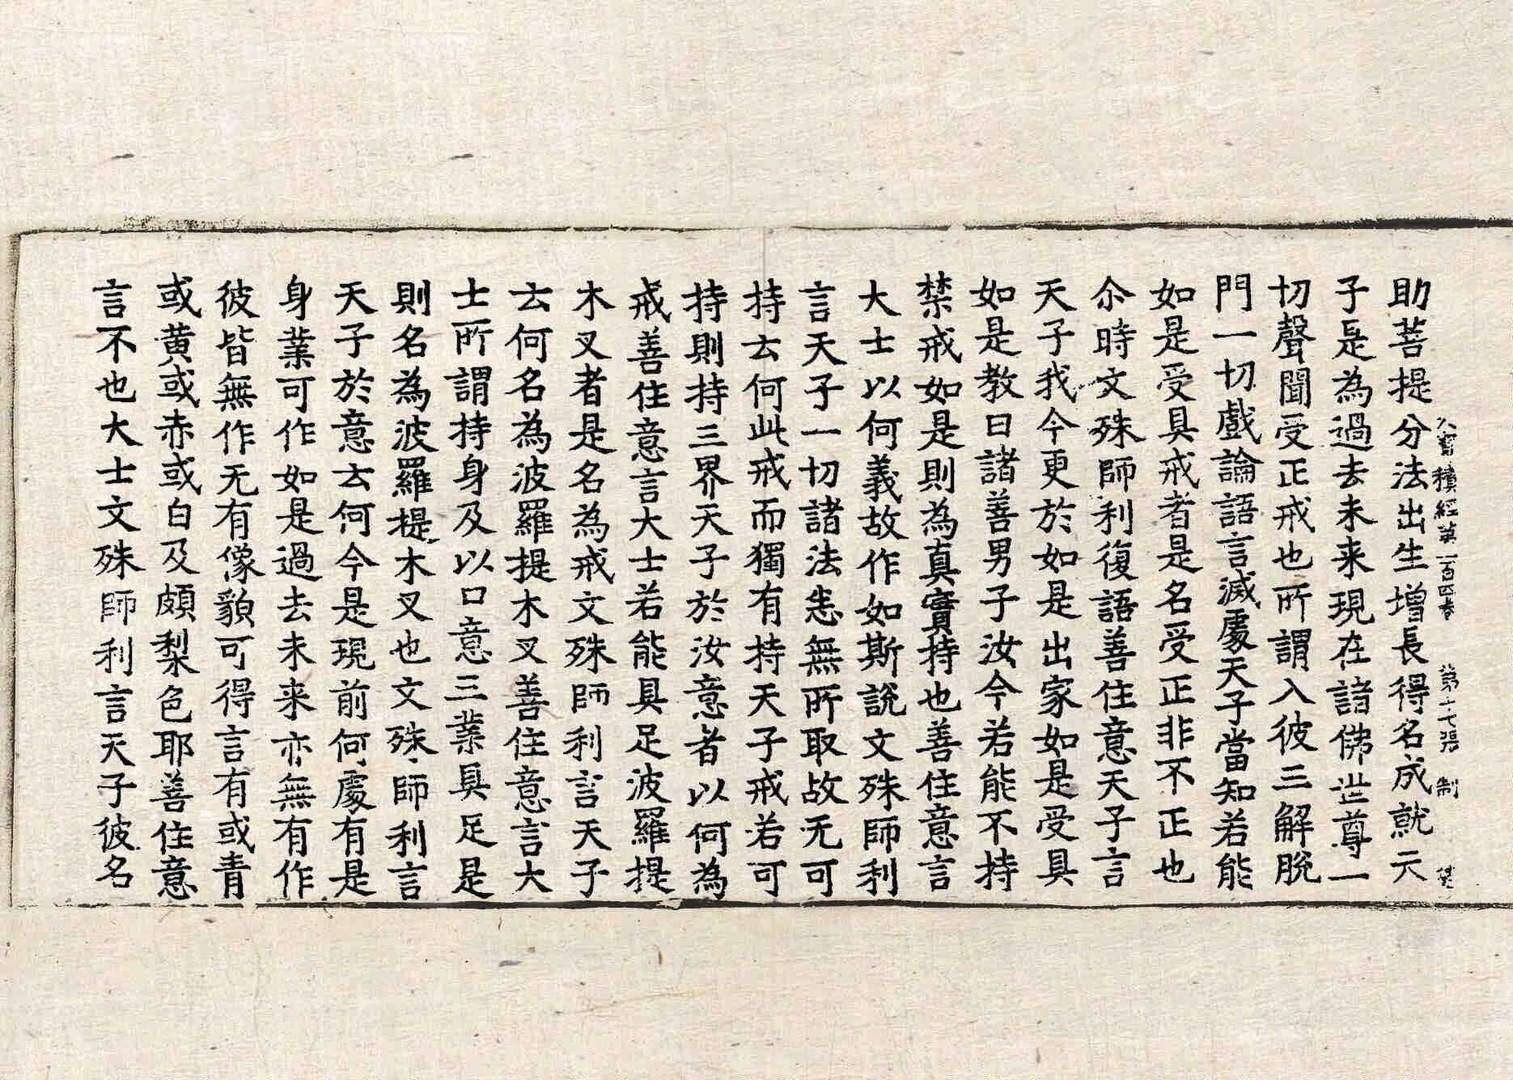 大寶積經第一百四卷 第十七張 制
助菩提分法出生增長得名成就云
子是為過去未来現在諸佛世尊一
切聲聞受正戒也所謂入彼三解脫
門一切戲論語言滅處天子當知若能
如是受具戒者是名受正非不正也
尒時文殊師利復語善住意天子言
天子我今更於如是出家如是受具
如是教曰諸善男子汝今若能不持
禁戒如是則為真實持也善住意言
大士以何義故作如斯說文殊師利
言天子一切諸法悉無所取故无可
持云何此戒而獨有持天子戒若可
持則持三界天子於汝意者以何為
戒善住意言大士若能具足波羅提
木叉者是名為戒文殊師利言天子
云何名為波羅提木叉善住意言大
士所謂持身及以口意三業具足是
則名為波羅提木叉也文殊師利言
天子於意云何今是現前何處有是
身業可作如是過去未来亦無有作
彼皆無作无有像貌可得言有或青
或黄或赤或白及頗梨色耶善住意
言不也大士文殊師利言天子彼名